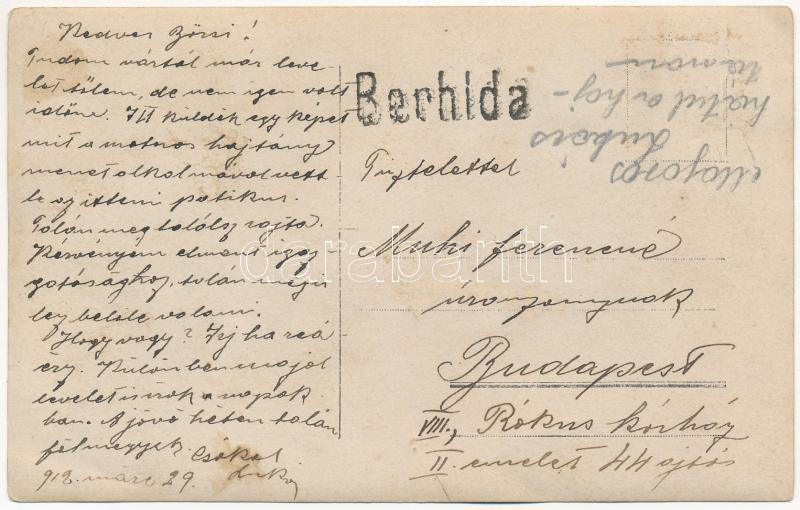 Kedves Bözsi!
Tudom vártál már leve-
let tőlem, de nem igen volt
időm. Itt küldök egy képet
mit a motoros hajtány
menet alkalmával vett
le az itteni patikus.
Talán megtalálsz rajta.
Kérvényem elment igaz-
gatósághoz, talán mégis
lesz belőle valami.
Hogy vagy? Írj ha reá-
érsz. Különben majd
levelet is írok a napok-
ban. A jövő héten talán
felmegyek. Csókol
918. márc 29.
Berhida
Tisztelettel
Muki Ferencné
úrasszonynak
Budapest
VIII., Rókus kórház
II. emelet 44 ajtó
Majoros
Lukács
hátul a haj-
tányon
darabanth